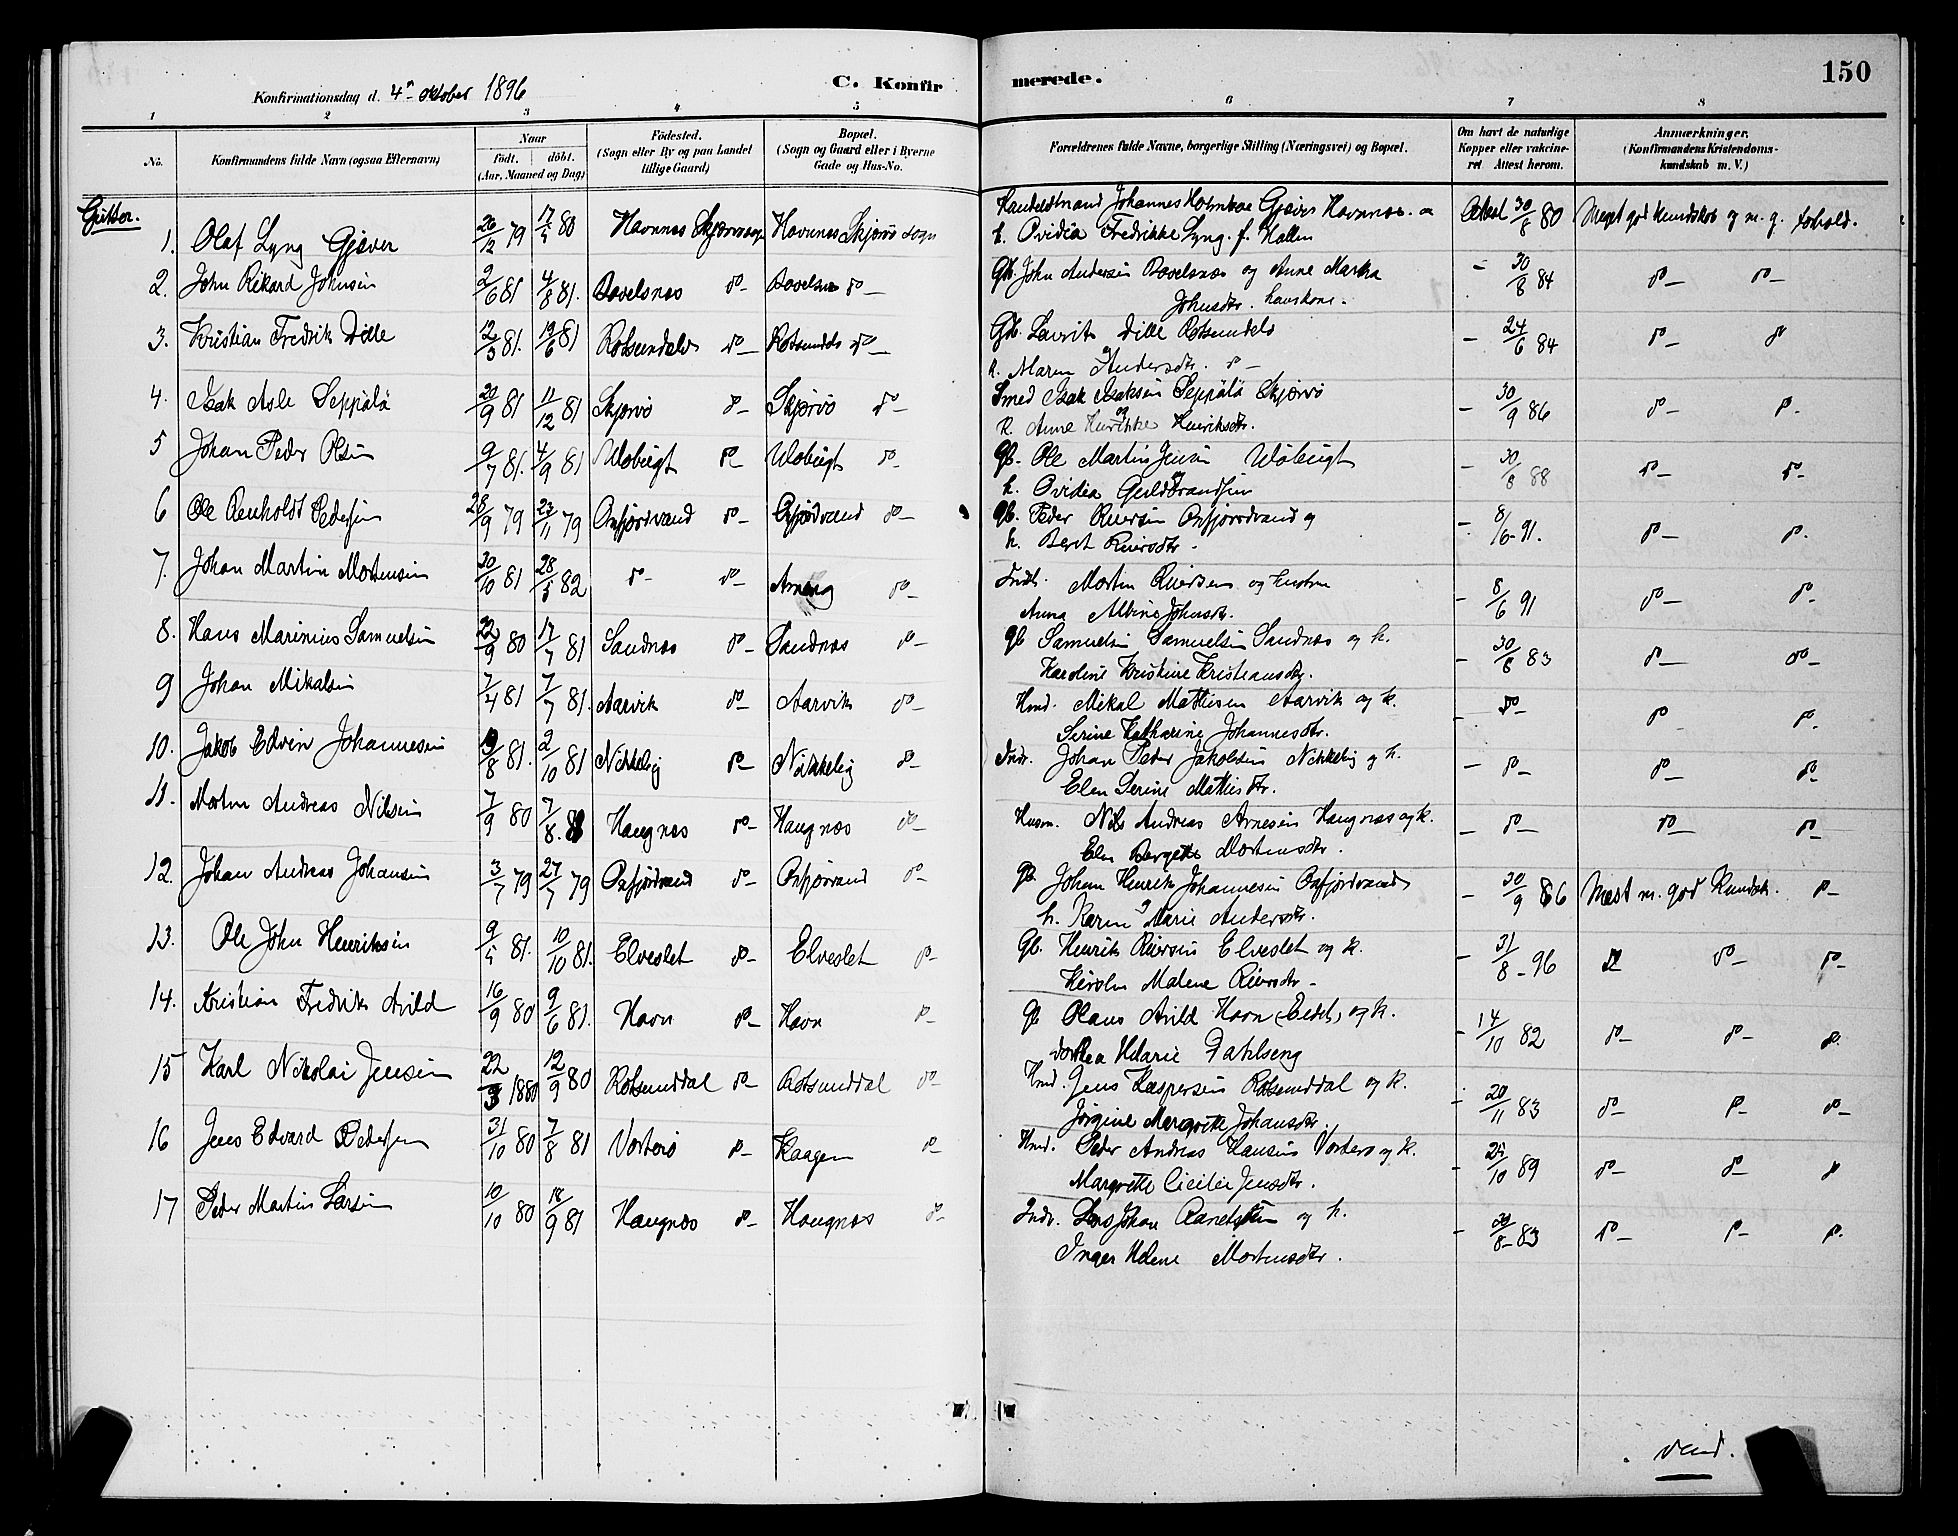 150
Konfirmationsdag d. 4de Oktober 1896
C. Konfirmerede.
1 2 3 4 5 6 7 8
No. Konfirmandens fulde Navn (ogsaa Efternavn) Naar Födt. döbt. (Aar, Maaned og Dag) Födested. (Sogn eller By og paa Landet tillige Gaard) Bopæl. (Sogn og Gaard eller i Byerne Gade og Hus-No. Forældrenes fulde Navne, borgerlige Stilling (Næringsvei) og Bopæl. Om havt de naturlige Kopper eller vakcineret Attest herom. Anmærkninger. (Konfirmandens Kristendomskundskab m. V.)
Gutter.
1. Olaf Lyng Gjæver 20/12 79 17/4 80 Havnnes Skjærvø sogn Havnnes Skjærvø sogn Handelsmand Johannes Holmboe Gjæver Havnnes o
h. Ovidia Fredrikke Lyng f. Hallen Attest 30/8 80 Meget god kundskab og m. g. forhold.
2. John Rikard Johnsen 2/6 81 4/8 81. Bovelsnæs do- Bovelsn do- Gb. John Andersen Bovelsnæs og Anne Marka
Johnsdtr. hans kone. - 30/8 84 do- do-
3. Kristian Fredrik Dille 12/3 81. 19/6 81 Rotsundelv do- Rotsundelv do- Gb. Laurits Dille Rotsundelv
og k. Maren Andersdtr. do- - 24/6 84 do- do
4. Isak Asle Seppälä 20/9 81 11/12 81 Skjærvø do- Skjærvø do- Smed Isak Isaksen Seppälä Skjærvø
og k. Anne Henrikke Henriksdtr. - 30/9 86 do- do.
5 Johan Peder Olsen 9/7 81. 4/9 81 Uløbugt do- Uløbugt do- Gb. Ole Martin Jensen Uløbugt
og h. Ovidia Guldbrandsen - 30/8 88 do- do-
6 Ole Renholdt Pedersen 28/9 79 23/11 79 Oxfjordvand do- Oxfjordvand do- Gb. Peder Riersen Oxfjordvand og
h. Beret Riersdtr. - 8/6 91. do- do.
7. Johan Martin Mortensen 30/10 81 28/5 82 do- do- do- Indr. Morten Riersen og hustru
Anna Albine Johnsdtr. - 8/6 91 do- do-
8. Hans Marinius Samuelsen 80 17/7 81 Sandnæs do- Sandnæs do- Gb Samuelsen Samuelsen Sandnæs og h.
Karoline Kristine Kristiansdtr. - 30/8 83 do- do-
9 Johan Mikalsen 7/4 81 7/7 81. Aarvik do- Aarvik do- Hmd. Mikal Mathisen Aarvik og k.
Serine Katharine Johannesdtr. - do- do- do-
10. Jakob Edvin Johannesen 81. 2/10 81 Nikkelvig do- Nikkelvig do- Indr. Johan Peder Jakobsen Nikkelvig og h.
Elen Serine Mathisdtr. - do- do- do-
11. Morten Andreas Nilsen 7/9 80 7/8 Haugnæs do- Haugnæs do- Husm. Nils Andreas Arnesen Haugnæs og k.
Elen Bergette Mortensdtr. - do- do- do-
12. Johan Andreas Johansen 3/7 79 27/7 79 Oxfjordvand do- Oxfjorvand do- Gb. Johan Henrik Johannesen Oxfjordvand
og h. Karen Marie Andersdtr. - 30/9 86 Mest m. god Kundsk. do-
13. Ole John Henriksen 81. 10/10 81. Elveslet do- Elveslet do- Gb. Henrik Riersen Elveslet og k.
Malene Riersdtr. - 31/8 - 96 do- do-
14. Kristian Fredrik Arild 16/9 80 9/6 81. Havn do- Havn do- Gb Olaus Arild Havn og k.
Marie Dahlseng - 14/10 82 do- do- do.
15 Karl Nikolai Jensen 22/3 1880 12/9 80 Rotsunddal do- Rotsunddal do- Hmd. Jens Kaspersen Rotsunddal og k.
Jørgine Margrette Johansdtr. - 20/11 83 do- do- do-
16 Jens Edvard Pedersen 31/10 80 7/8 81 Vorterø do- Kaagen do- Hmd. Peder Andreas Hansen Vorterø og k.
Margrette Cicilie Jensdtr. - 10 89 do- do- do
17 Peder Martin Larsen 10/10 80 18/9 81 Haugnæs do- Haugnæs do- Indr. Lars Johan og h.
Inger Helene Mortensdtr. - 8 - 83 do- do- do.
vend.